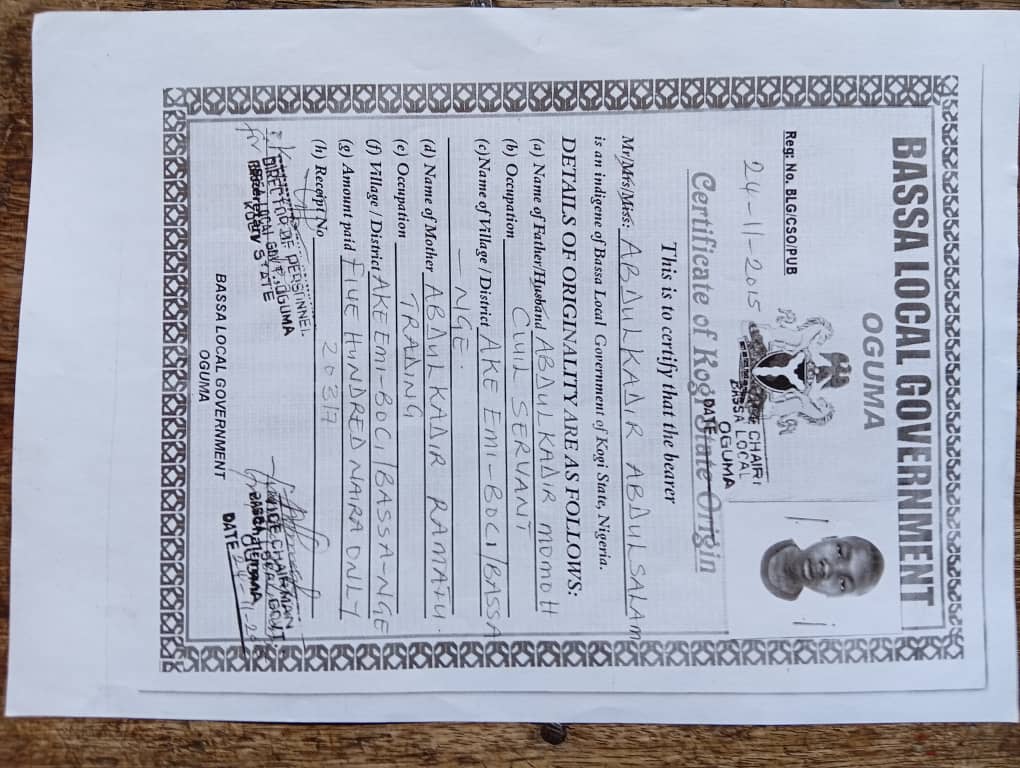 BASSA LOCAL GOVERNMENT
OGUMA
Reg: No. BLG/CSO/PUB
24-11-2015
CHAIR
BASSA LOCAL
OGUMA
DATE
Certificate of Kogi State Origin
This is to certify that the bearer
Mr/Mrs/Miss: ABDULKADIR ABDULSALAM
is an indigene of Bassa Local Government of Kogi State, Nigeria.
DETAILS OF ORIGINALITY ARE AS FOLLOWS:
(a) Name of Father/Husband ABDULKADIR MOMOH
(b) Occupation CIVIL SERVANT
(c) Name of Village/District AKE EMI-BOCI/BASSA
-NGE.
(d) Name of Mother ABDULKADIR RAMATU.
(e) Occupation TRADING
(f) Village/District AKE EMI-BOCI/BASSA-NGE
(g) Amount paid FIVE HUNDRED NAIRA ONLY
(h) Receipt No 20317
DIRECTOR OF PERSONNEL
OGUMA
STATE
VICE CHAIRMAN
OGUMA
DATE
BASSA LOCAL GOVERNMENT
OGUMA